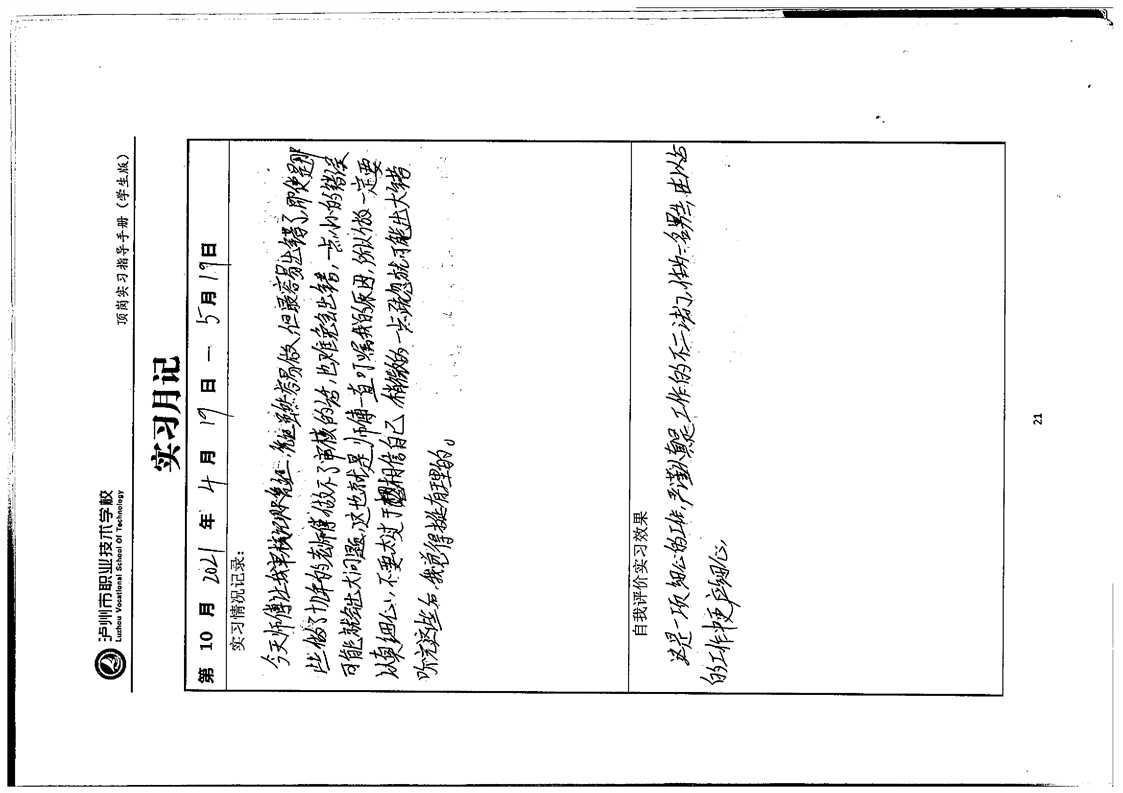 泸州市职业技术学校
Luzhou Vocational School Of Technology
顶岗实习指导手册（学生版）
实习月记
第 10 月 2021 年 4 月 19 日 — 5 月 19 日
实习情况记录：
今天师傅让我审核记账凭证，凭证虽然容易做，但最容易出错了，即使是那
些做了几十年的老师傅做不了审核的话，也难免会出错，一点小小的错误
可能就会出大问题，这也就是师傅一直叮嘱我的原因，所以做一定要
认真细心，不要太过于相信自己，稍微的一点疏忽就可能出大错
听完这些后，我觉得挺有理的。
自我评价实习效果
这是一项细心的工作，严谨认真是工作的不二法门，作为一名男生，在以后
的工作中更应细心，
21